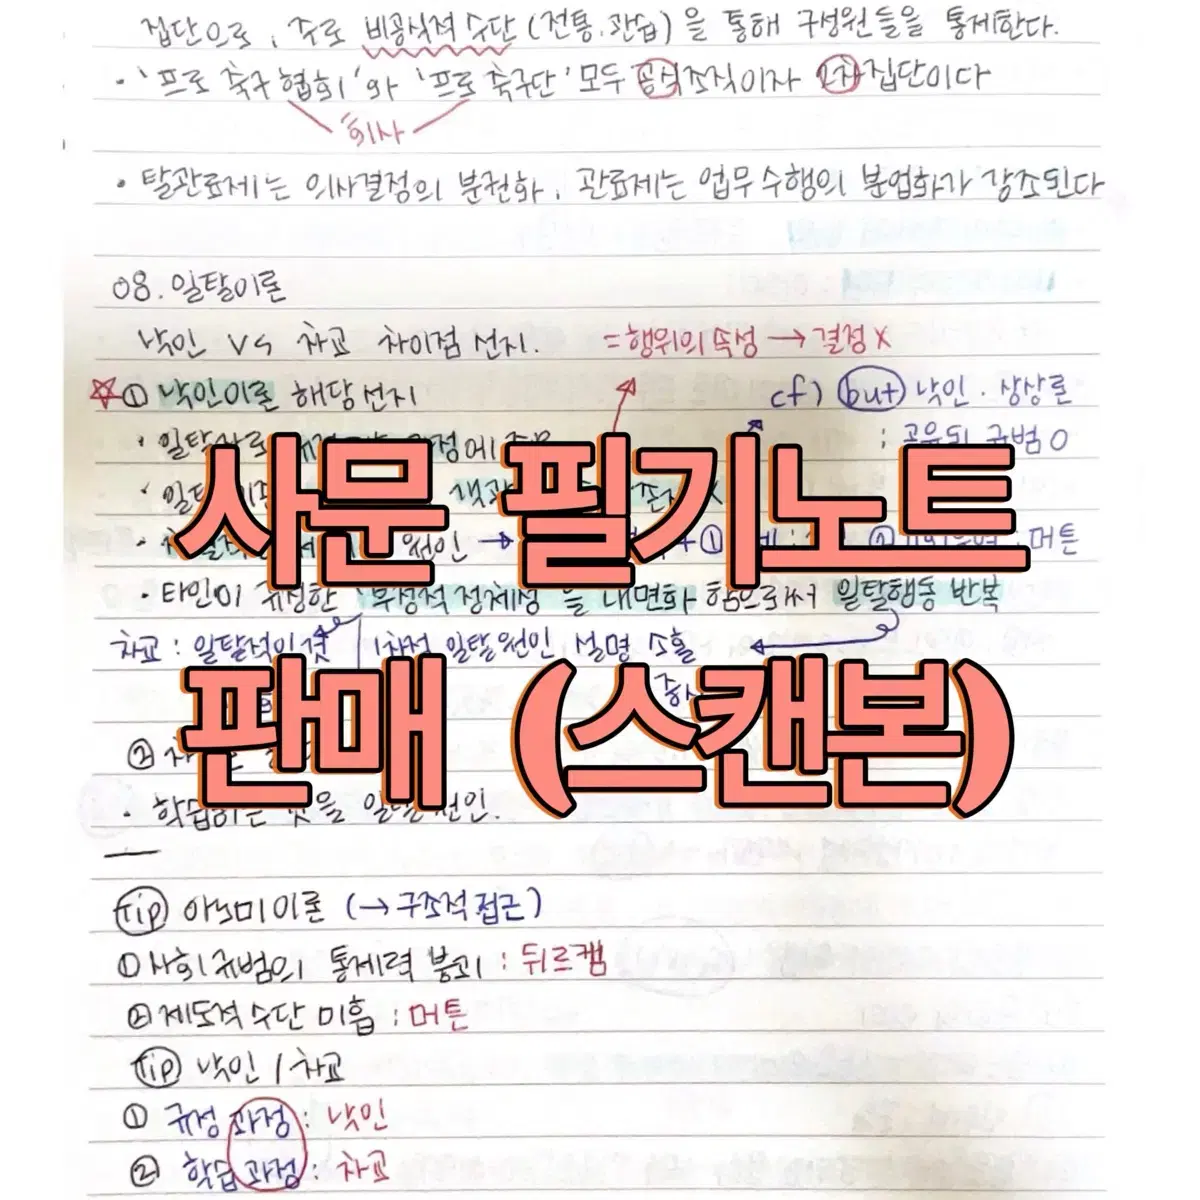 집단으로, 주로 비공식적 수단 (전통.관습)을 통해 구성원들을 통제한다.
· '프로 축구 협회'와 '프로 축구단' 모두 공식조직이자 2차 집단이다
회사
· 탈관료제는 의사결정의 분권화, 관료제는 업무수행의 분업화가 강조된다
08. 일탈이론
낙인 vs 차교 차이점 선지.
=행위의 속성 → 결정 X
☆① 낙인이론 해당선지
cf) but 낙인 · 상상론
: 공유된 규범 O
· 일탈
· 일탈
원인 →
: 머튼
사문 필기노트
· 타인이 규정한 부정적 정체성을 내면화 함으로써 일탈행동 반복
차교 : 일탈적인 것
1차적 일탈 원인 설명 소홀
판매 (스캔본)
②
· 학습하는 것을 일탈 원인.
tip 아노미이론 (→구조적 접근)
① 사회규범의 통제력 붕괴 : 뒤르켐
② 제도적 수단 미흡 : 머튼
tip 낙인 / 차교
① 규정 과정 : 낙인
② 학습 과정 : 차교